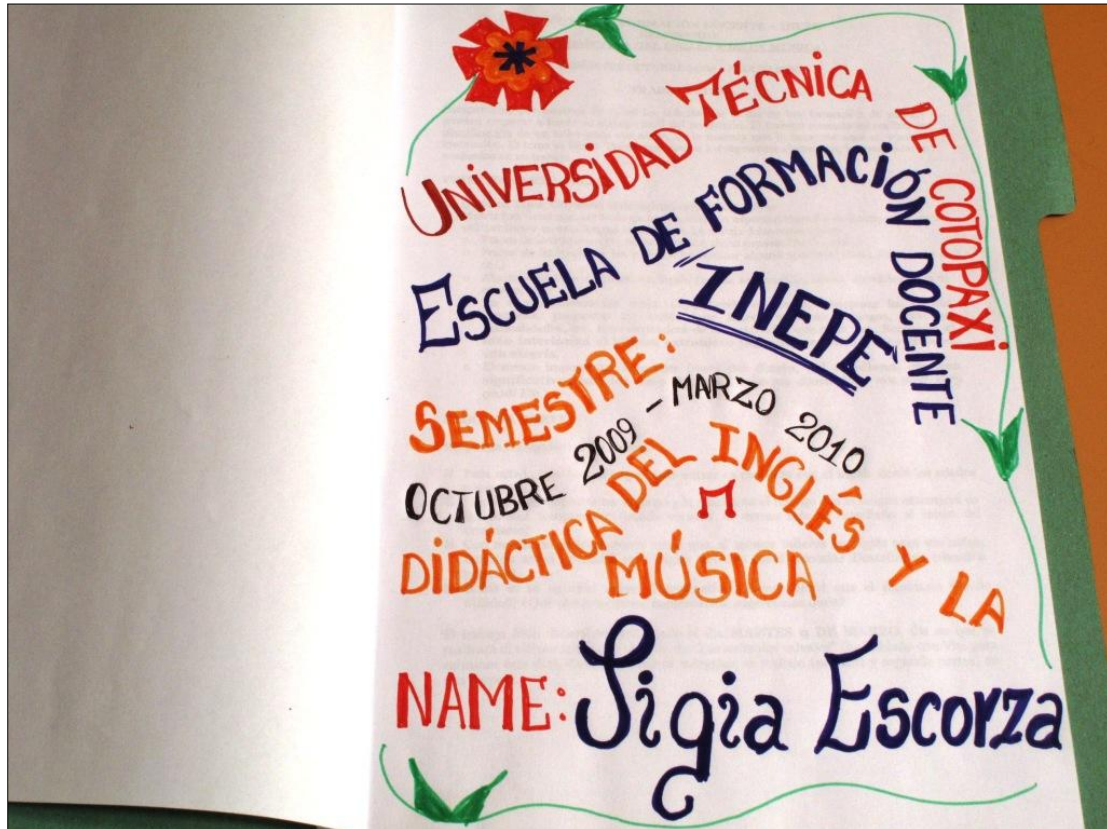 UNIVERSIDAD TÉCNICA DE COTOPAXI
ESCUELA DE FORMACIÓN DOCENTE
"INEPE"
SEMESTRE:
OCTUBRE 2009 - MARZO 2010
DIDÁCTICA DEL INGLÉS Y LA
MÚSICA
NAME: Sigia Escorza